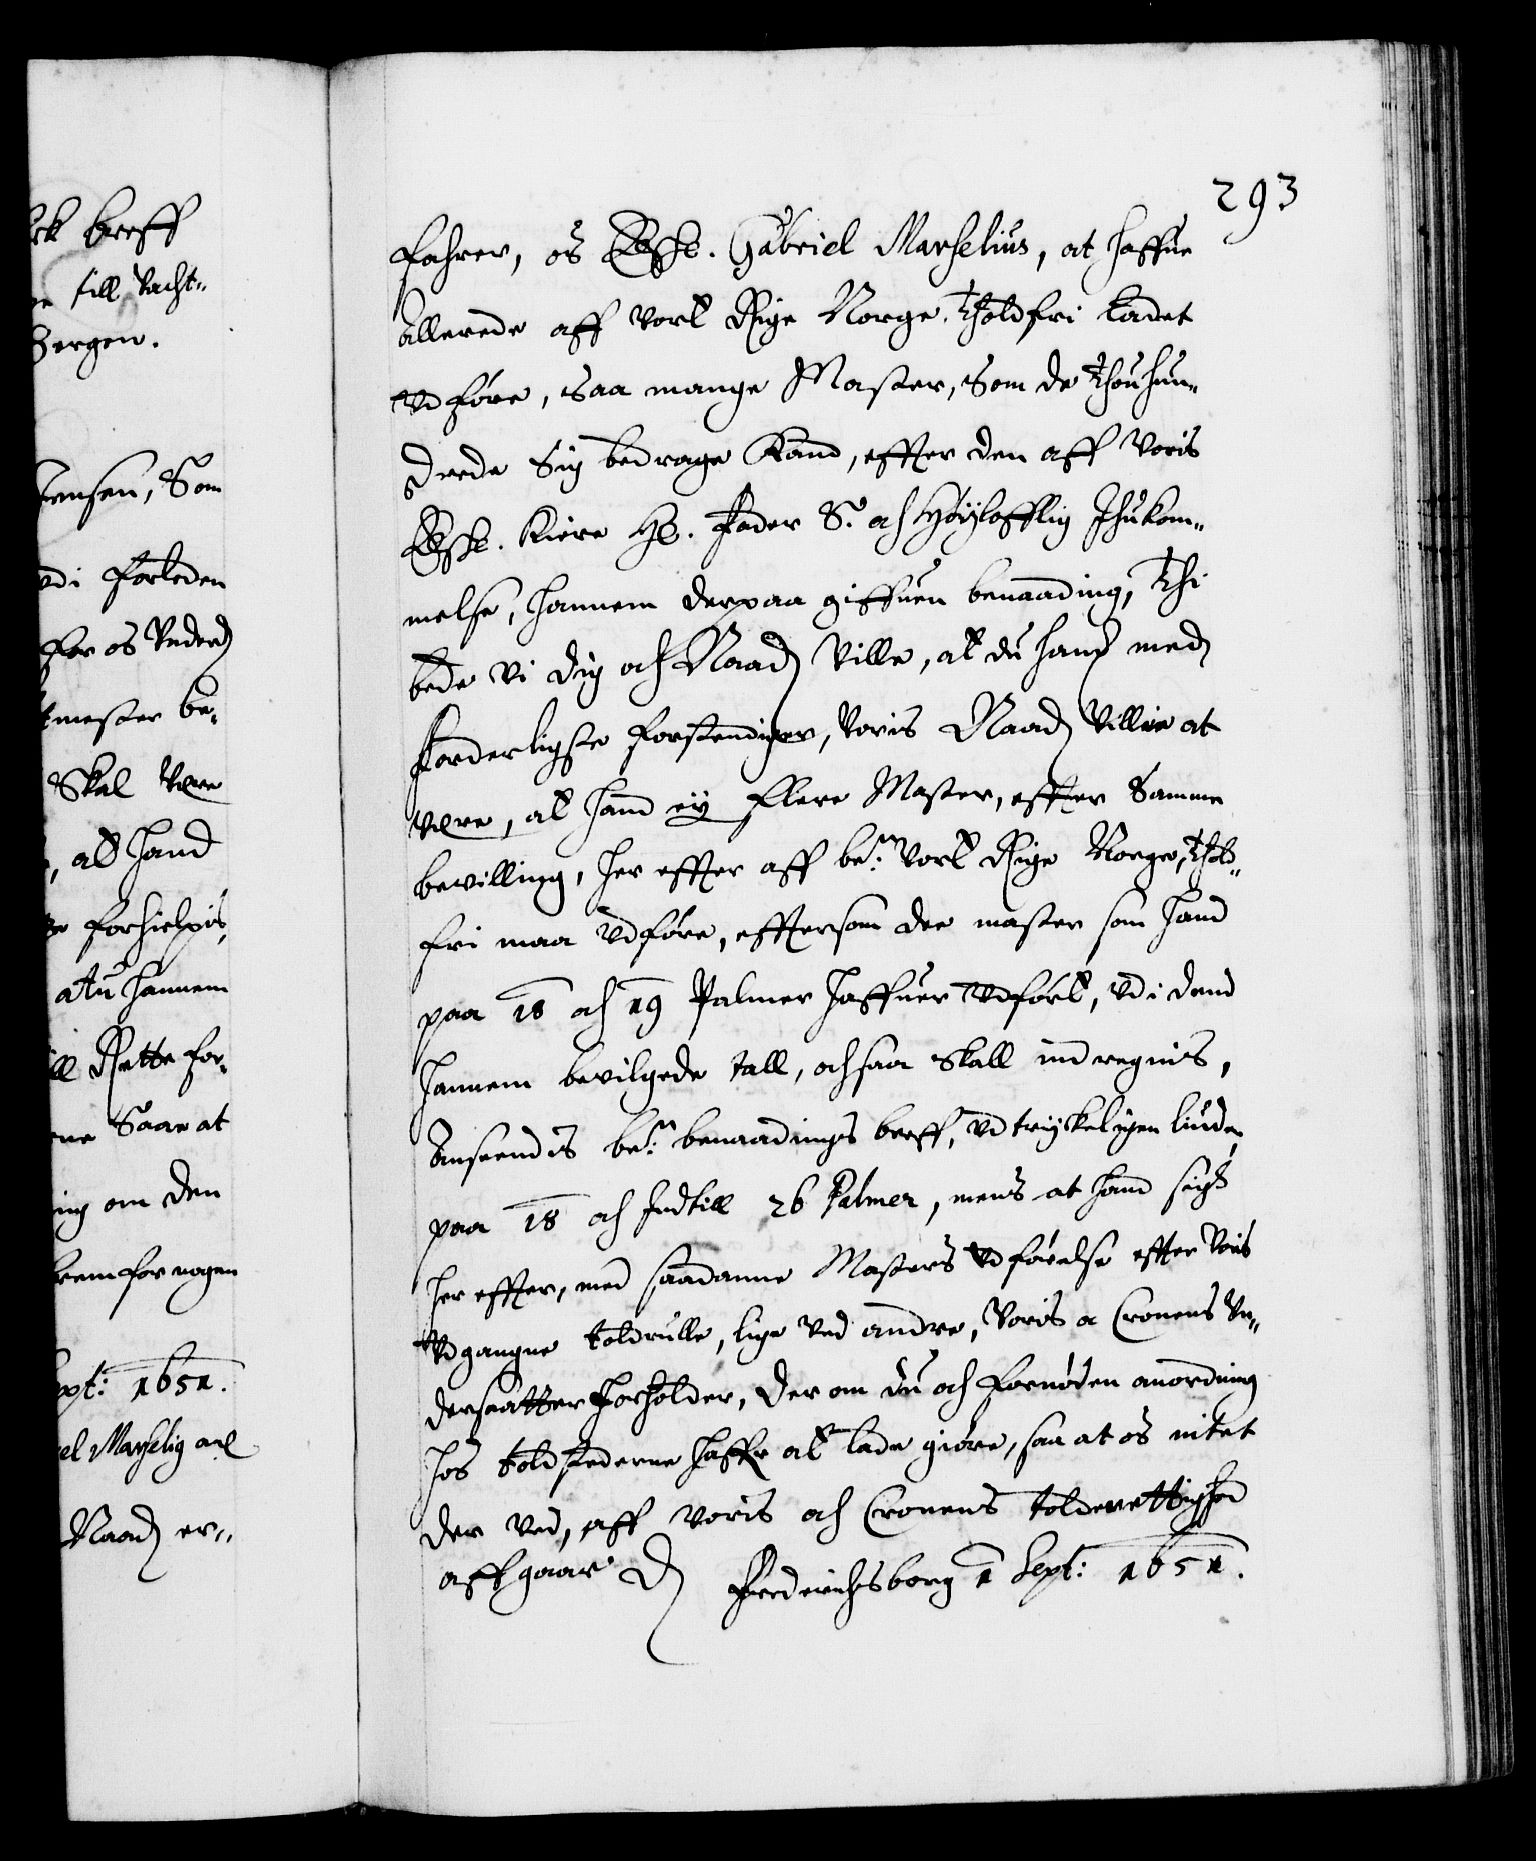 ck breff
till Vacht-
Bergen.
Jensen, Som
vdi forleden
for os Vnderd
mester be-
Skal Vere
, att hand
forhielpis,
attu hannem
ill Rette for-
Saae at
ing om den
frem for nogen
Sept: 1651.
el Marselig anl
Naad er-
293
fahrer, os Elsk. Gabriel Marselius, at haffue
Allerede aff vort Rige Norge, tholdfri ladet
vdføre, saa mange Master, som de thouhun-
drede Sig bedrage Kand, effter den aff Voris
Elsk. Kiere H. Fader S. och Høylofflig Ihukom-
melse, hannem derpaa giffuen benaading, Thi
bede vi dig och Naad Ville, at du hans med
forderligste forstendiger, Voris Naad Villie at
were, at hand ey flere Master, effter Samme
bevilling, her effter aff be:te Vort Rige Norge, thold-
fri maa vdføre, efftersom dee master som hand
paa 18 och 19 Palmer haffuer vdført, vdi dend
hannem bevilgede tall, ochsaa skall indregnis,
Anseendis be:te benaadings breff, vdtryckeligen liuder
paa 18 och Indtill 26 Palmer, mens at hand sig
her effter, med saadanne Masters vdførelse effter Voris
vdgangne toldrulle, lige ved andre, Voris oc Cronens Vn-
dersaatter forholder, der om du och fornøden anordning
hos toldstederne haffr att lade giøre, saa at os intet
der ved, aff voris och Cronens toldrettighed
affgaar. D Frederichsborg 1 Sept: 1651.